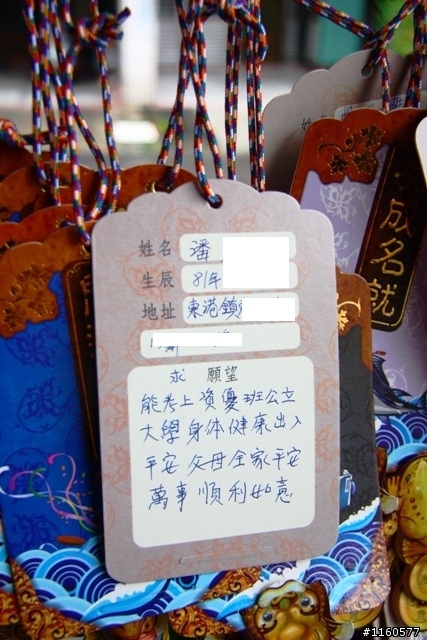 姓名 潘
生辰 81年
地址 東港鎮
求 願望
能考上資優班公立
大學身体健康出入
平安 父母全家平安
萬事順利如意
成名就
#1160577